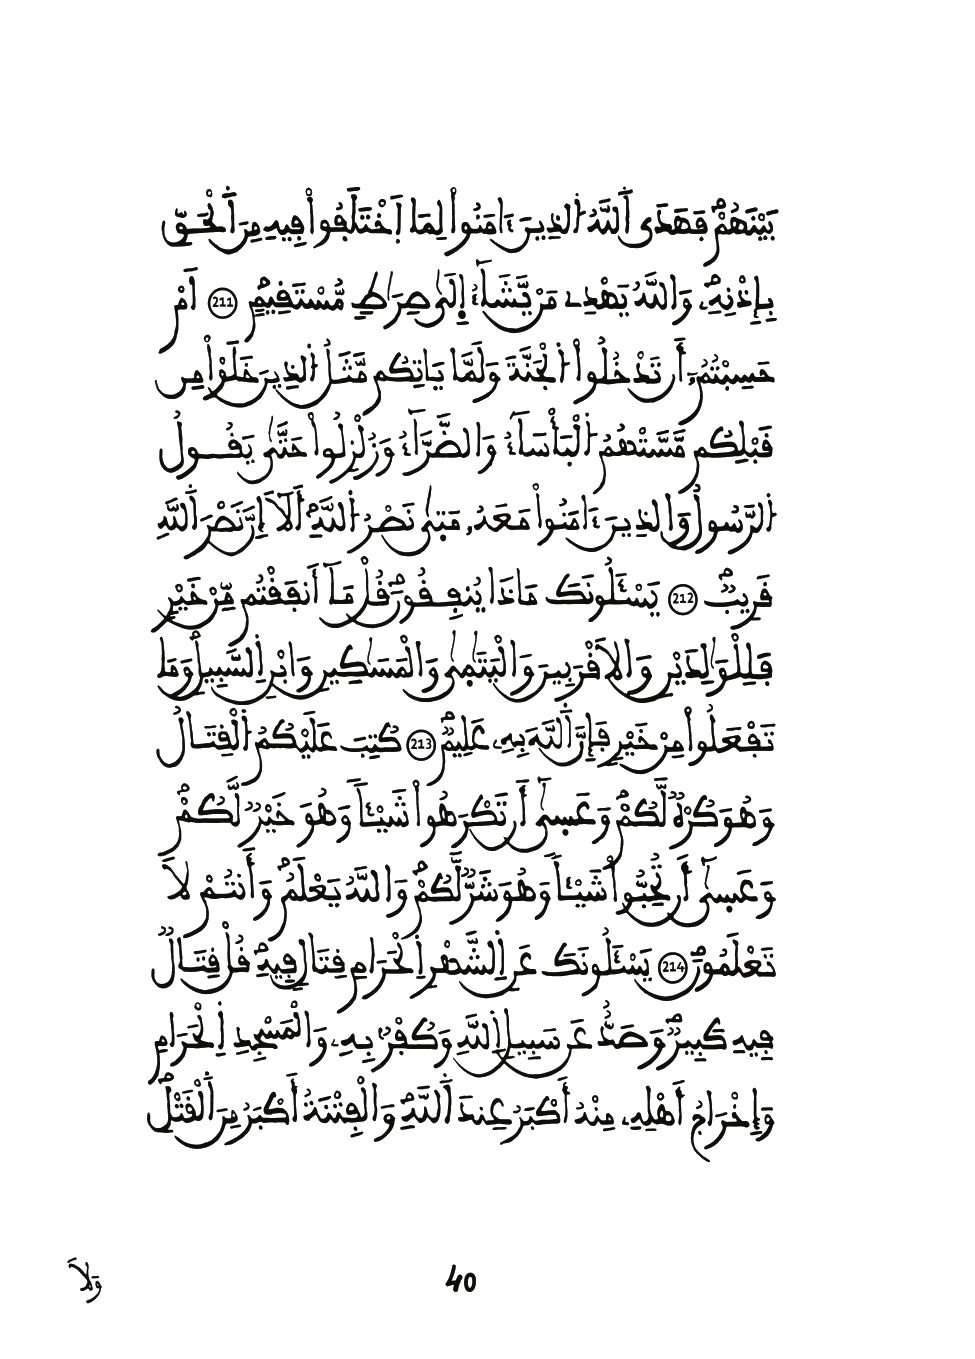 بَيْنَهُمْ فَهَدَى اَ۬للَّهُ اُ۬لذِينَ ءَامَنُواْ لِمَا اَ۪خْتَلَفُواْ فِيهِ مِنَ اَ۬لْحَقِّ
بِإِذْنِهِۦ وَاللَّهُ يَهْدِے مَنْ يَّشَآءُ اِ۪لَىٰ صِرَٰطٍ مُّسْتَقِيمٍ 211 اَمْ
حَسِبْتُمُۥٓ أَن تَدْخُلُواْ اُ۬لْجَنَّةَ وَلَمَّا يَاتِكُم مَّثَلُ اُ۬لذِينَ خَلَوْاْ مِن
قَبْلِكُم مَّسَّتْهُمُ اُ۬لْبَأْسَآءُ وَالضَّرَّآءُ وَزُلْزِلُواْ حَتَّىٰ يَقُولُ
اُ۬لرَّسُولُ وَالذِينَ ءَامَنُواْ مَعَهُۥ مَتَىٰ نَصْرُ اُ۬للَّهِ أَلَآ إِنَّ نَصْرَ اَ۬للَّهِ
قَرِيبٌ 212 يَسْـَٔلُونَكَ مَاذَا يُنفِقُونَ قُلْ مَآ أَنفَقْتُم مِّنْ خَيْرٍ
فَلِلْوَٰلِدَيْنِ وَالَاقْرَبِينَ وَالْيَتَٰمَىٰ وَالْمَسَٰكِينِ وَابْنِ اِ۬لسَّبِيلِ وَمَا
تَفْعَلُواْ مِنْ خَيْرٍ فَإِنَّ اَ۬للَّهَ بِهِۦ عَلِيمٌ 213 كُتِبَ عَلَيْكُمُ اُ۬لْقِتَالُ
وَهُوَ كُرْهٌ لَّكُمْ وَعَسَىٰٓ أَن تَكْرَهُواْ شَيْـٔاً وَهُوَ خَيْرٌ لَّكُمْ
وَعَسَىٰٓ أَن تُحِبُّواْ شَيْـٔاً وَهُوَ شَرٌّ لَّكُمْ وَاللَّهُ يَعْلَمُ وَأَنتُمْ لَا
تَعْلَمُونَ 214 يَسْـَٔلُونَكَ عَنِ اِ۬لشَّهْرِ اِ۬لْحَرَامِ قِتَالٍ فِيهِ قُلْ قِتَالٌ
فِيهِ كَبِيرٌ وَصَدٌّ عَن سَبِيلِ اِ۬للَّهِ وَكُفْرٌۢ بِهِۦ وَالْمَسْجِدِ اِ۬لْحَرَامِ
وَإِخْرَاجُ أَهْلِهِۦ مِنْهُ أَكْبَرُ عِندَ اَ۬للَّهِ وَالْفِتْنَةُ أَكْبَرُ مِنَ اَ۬لْقَتْلِ
40
وَلَا